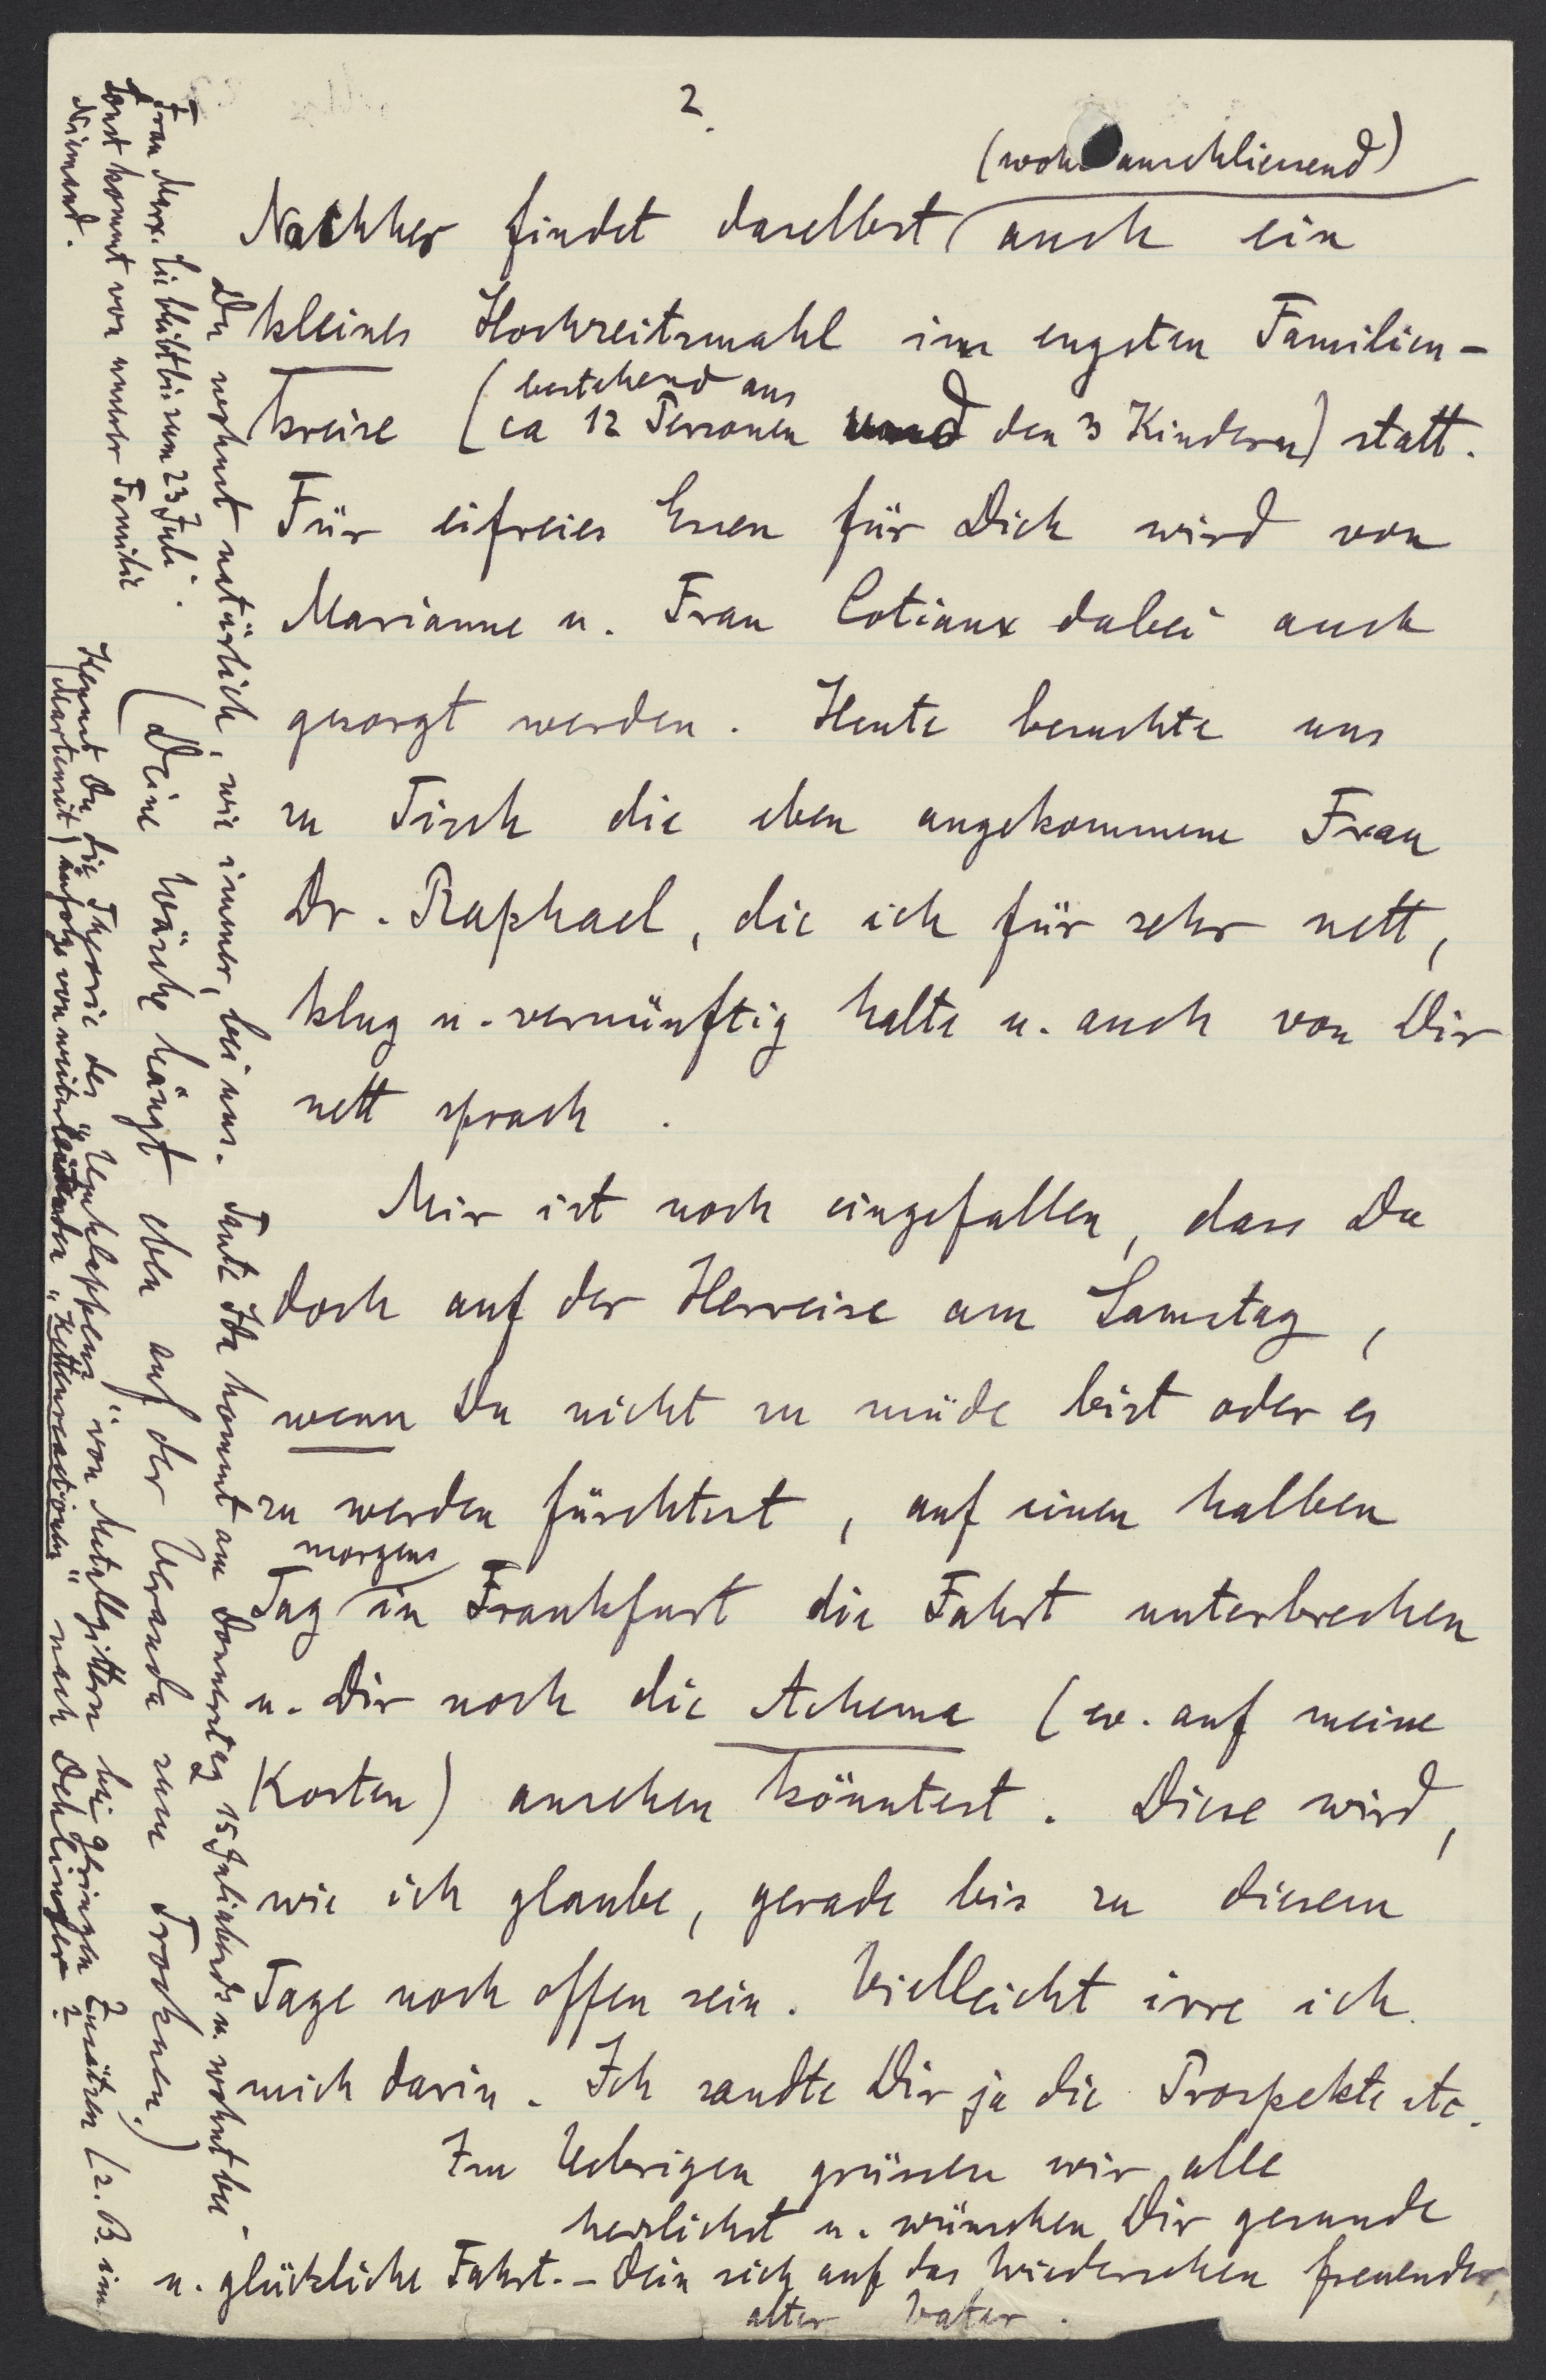 2.
(wohl anschliessend)
Nachher findet daselbst auch ein
kleines Hochzeitsmahl im engsten Familien-
bestehend aus
kreise (ca 12 Personen und den 3 Kindern) statt.
Für eifreies Essen für Dich wird von
Marianne u. Frau Cotiaux dabei auch
gesorgt werden. Heute besuchte uns
zu Tisch die eben angekommene Frau
Dr. Raphael, die ich für sehr nett,
klug u. vernünftig halte u. auch von Dir
nett sprach.
Mir ist noch eingefallen, dass Du
doch auf der Herreise am Samstag,
wenn Du nicht zu müde bist oder es
zu werden fürchtest, auf einen halben
morgens
Tag in Frankfurt die Fahrt unterbrechen
u. Dir noch die Achema (ev. auf meine
Kosten) ansehen könntest. Diese wird,
wie ich glaube, gerade bis zu diesem
Tage noch offen sein. Vielleicht irre ich
mich darin. Ich sandte Dir ja die Prospekte etc.
Im Uebrigen grüssen wir alle
herzlichst u. wünschen Dir gesunde
u. glückliche Fahrt. - Dein sich auf das Wiedersehen freuender,
alter Vater.
Du wohnst natürlich, wie immer, bei uns. Tante Ida kommt am Donnerstag 15 Juli abends u. wohnt bei
Frau Marx. Sie bleibt bis zum 23 Juli.
Sonst kommt von unserer Familie
Niemand.
(Deine Wäsche hängt eben auf der Veranda zum Trocknen.)
Kennst Du die Theorie des "Umklappens" von Metallgittern bei geringen Zusätzen (z. B. im
Martensit) infolge von weiterleitenden "Kettenreaktionen" nach Dehlinger?